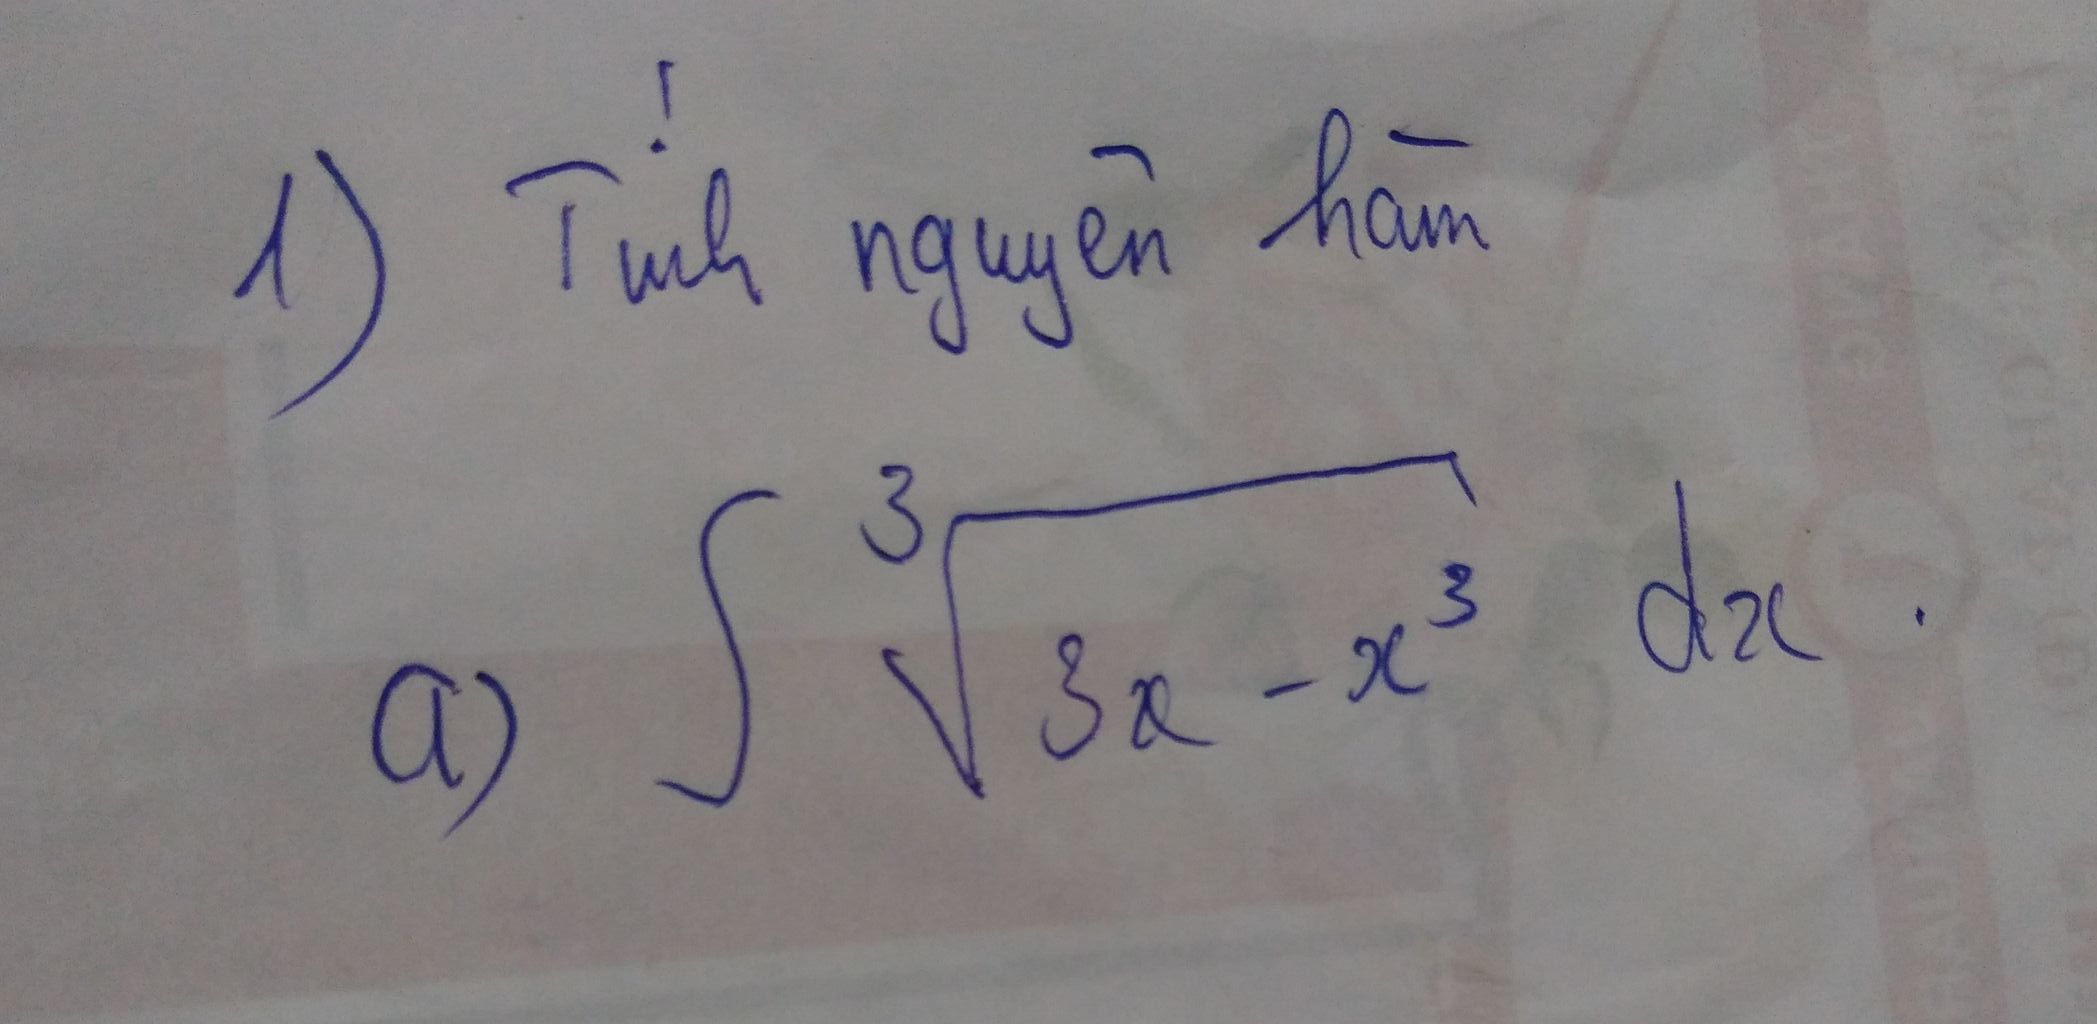 1) Tính nguyên hàm
a) ∫ ∛(3x - x³) dx.